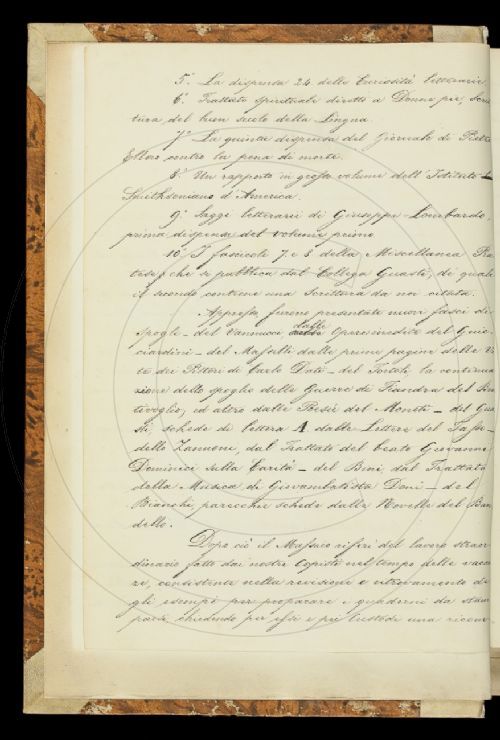 5.º La dispensa 24 delle Curiosità letterarie.
6.º Trattato spirituale diretto a Donne pie, Scrit
tura del buon secolo della Lingua.
7.º La quinta dispensa del Giornale di Pietro
Ellero contro la pena di morte.
8.º Un rapporto in grosso volume dell'Istituto
Smithsoniano d'America.
9.º Saggi letterarii di Giuseppe Lombardo,
prima dispensa del volume primo.
10.º I fascicoli 7 e 8 della Miscellanea Pra
tese, che si pubblica dal Collega Guasti, de' quali
il secondo contiene una Scrittura da noi citata.
Appresso furono presentati nuovi fasci di
spogli - del Vannucci dalle Opere inedite del Guic
ciardini - del Masselli dalle prime pagine delle Vi
te dei Pittori di Carlo Dati - del Tortoli la continua
zione dello spoglio delle Guerre di Fiandra del Ben
tivoglio, ed altro dalle Poesie del Moneti - del Gua
sti, schede di lettera A dalle Lettere del Tasso -
dello Zannoni, dal Trattato del beato Giovanni
Dominici sulla Carità - del Bini, dal Trattato
della Musica di Giovambatista Doni - del
Bianchi, parecchie schede dalle Novelle del Ban
dello.
Dopo ciò il Massaio riferì del lavoro straor
dinario fatto dai nostri Copisti nel tempo delle vacan
ze, consistente nella revisione e ritrovamento de
gli esempi per preparare i quaderni da stam
parsi, chiedendo per essi e pel Custode una ricom